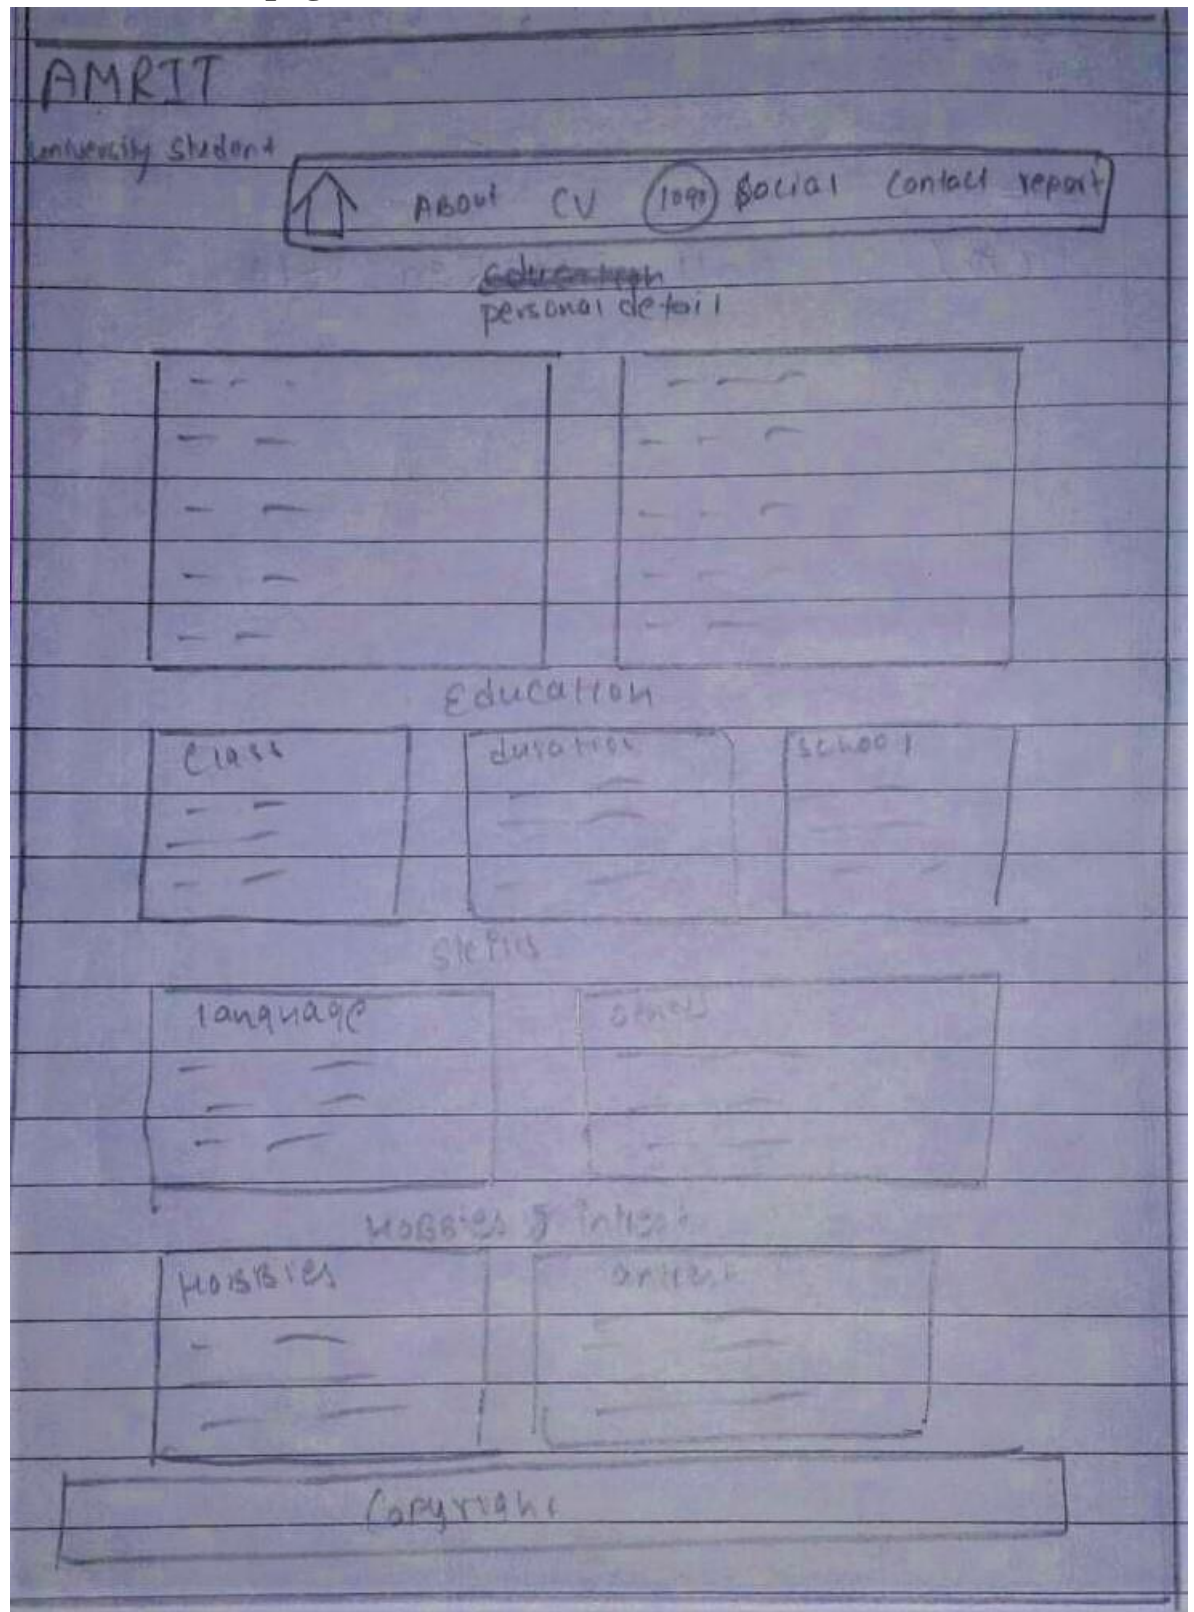 AMRIT
university student
ABOUT CV logo social contact report
education
personal detail
Education
Class duration school
skills
language others
HOBBIES & intrest
HOBBIES intrest
Copyright